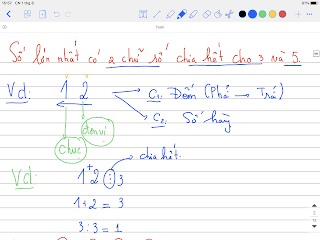 16:57 CN 1 thg 8
61%
Số lớn nhất có 2 chữ số chia hết cho 3 và 5.
Vd: 1 2 C₁: Đếm (Phải → Trái)
C₂: Số hàng
đơn vị
chục
chia hết.
Vd: 1+2 ⋮ 3
1+2 = 3
3:3 = 1